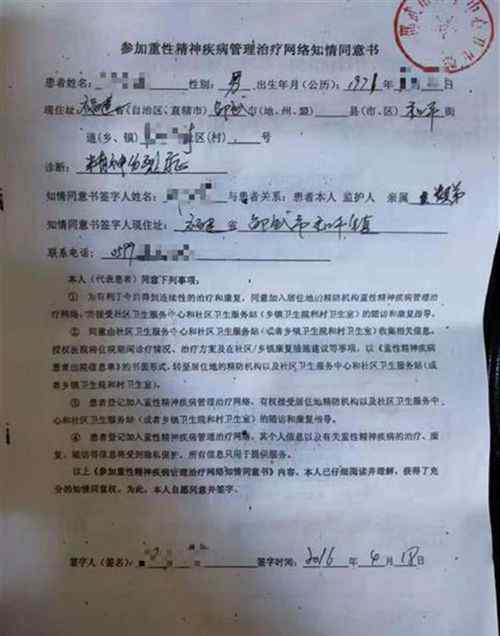 参加重性精神疾病管理治疗网络知情同意书
患者姓名: 性别: 男 出生年月(公历): 1971 年
现住址 福建 省(自治区、直辖市) 邵武 市(地、州、盟) 县(市、区) 和平 街
道(乡、镇) 社区(村) 号
诊断: 精神分裂症
知情同意书签字人姓名: 与患者关系: 患者本人 监护人 亲属
知情同意书签字人现住址: 福建 省 邵武市和平镇
联系电话: 0599
本人(代表患者)同意下列事项:
① 为有利于今后得到连续性的治疗和康复,同意加入居住地的精防机构重性精神疾病管理治
疗网络,并接受社区卫生服务中心和社区卫生服务站(乡镇卫生院和村卫生室)的随访和康复指导。
② 同意由社区卫生服务中心和社区卫生服务站(或者乡镇卫生院和村卫生室)收集相关信息,
授权医院将住院期间诊疗情况、治疗方案及在社区/乡镇康复措施建议等事项,以《重性精神疾病
患者出院信息单》的书面形式,转至居住地的精防机构以及社区卫生服务中心和社区卫生服务站(或
者乡镇卫生院和村卫生室)。
③ 患者登记加入重性精神疾病管理治疗网络,有权接受居住地精防机构以及社区卫生服务中
心和社区卫生服务站(或者乡镇卫生院和村卫生室)的随访和康复指导。
④ 患者登记加入重性精神疾病管理治疗网络,其个人信息以及有关重性精神疾病的治疗、康
复、随访等信息将受到隐私保护,所有信息只用于提供服务。
以上《参加重性精神疾病管理治疗网络知情同意书》内容,本人已仔细阅读并理解,获得了充
分的知情同意权。为此,本人自愿同意并签字。
签字人(签名): 签字时间: 2016 年 4 月 18 日